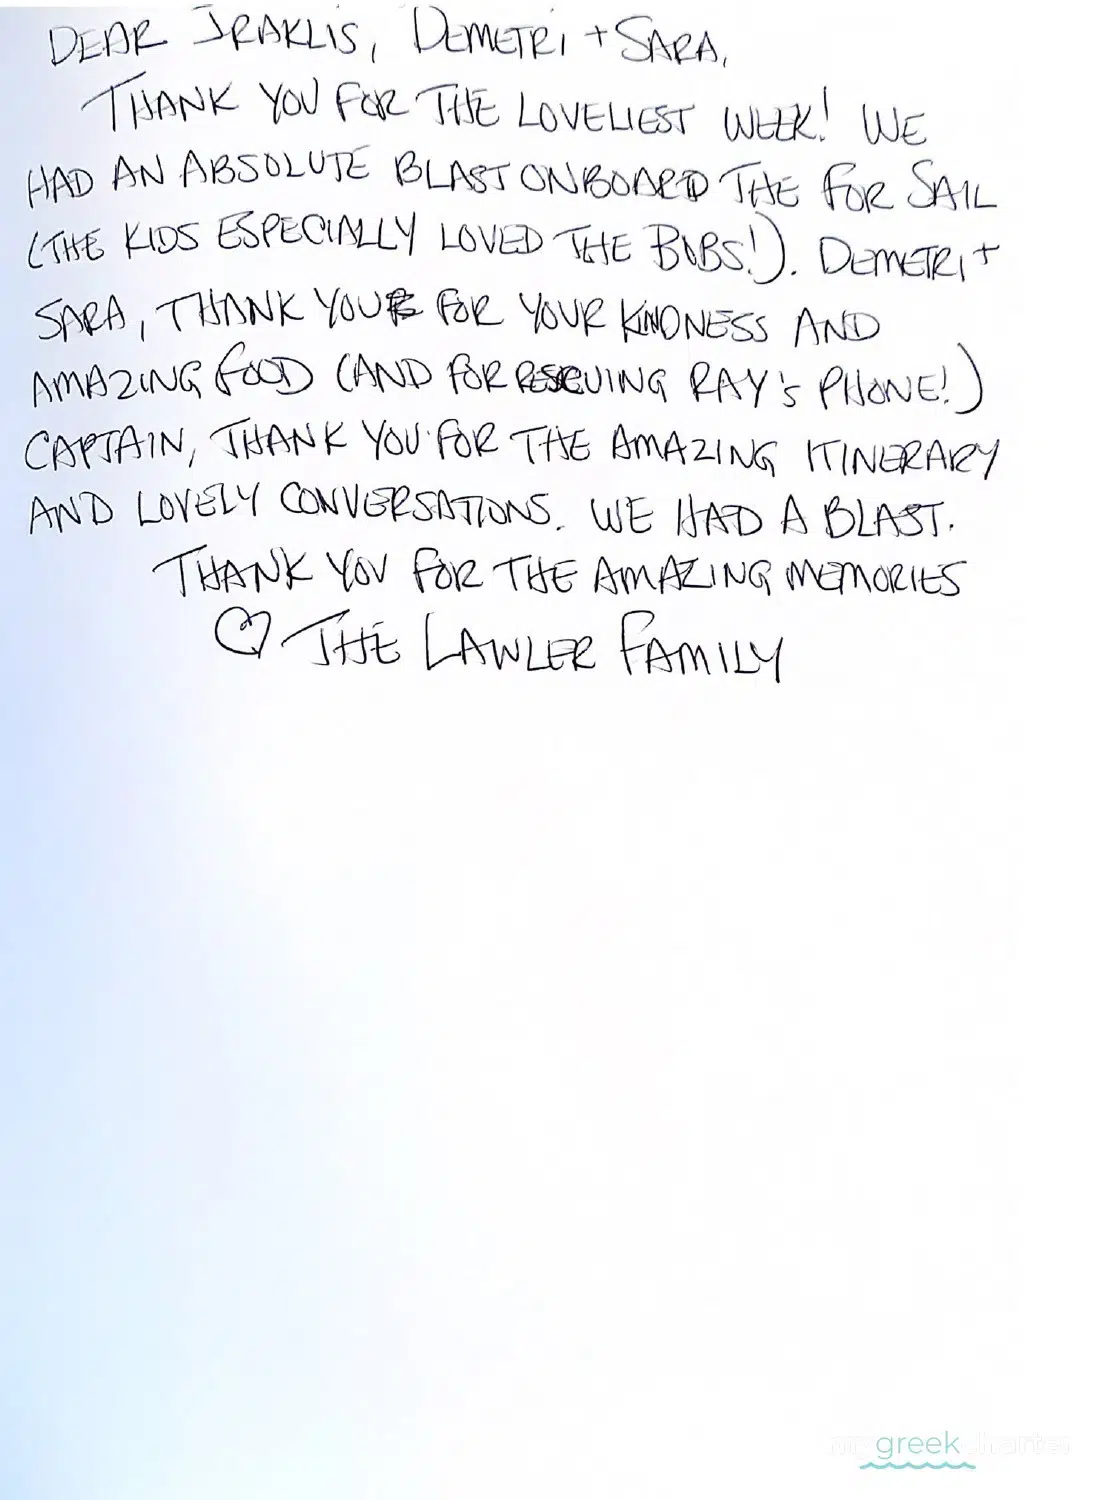 DEAR IRAKLIS, DEMETRI + SARA,
THANK YOU FOR THE LOVELIEST WEEK! WE
HAD AN ABSOLUTE BLAST ONBOARD THE FOR SAIL
(THE KIDS ESPECIALLY LOVED THE BUBS!). DEMETRI +
SARA, THANK YOU FOR YOUR KINDNESS AND
AMAZING FOOD (AND FOR RESCUING RAY'S PHONE!)
CAPTAIN, THANK YOU FOR THE AMAZING ITINERARY
AND LOVELY CONVERSATIONS. WE HAD A BLAST.
THANK YOU FOR THE AMAZING MEMORIES
THE LAWLER FAMILY
greek charter